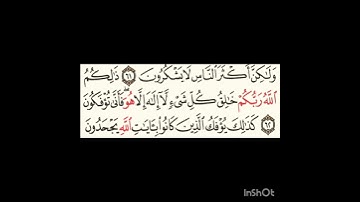 وَلَٰكِنَّ أَكْثَرَ ٱلنَّاسِ لَا يَشْكُرُونَ ٦١ ذَٰلِكُمُ
ٱللَّهُ رَبُّكُمْ خَٰلِقُ كُلِّ شَىْءٍ لَّآ إِلَٰهَ إِلَّا هُوَ ۖ فَأَنَّىٰ تُؤْفَكُونَ
٦٢ كَذَٰلِكَ يُؤْفَكُ ٱلَّذِينَ كَانُوا۟ بِـَٔايَٰتِ ٱللَّهِ يَجْحَدُونَ
InShOt